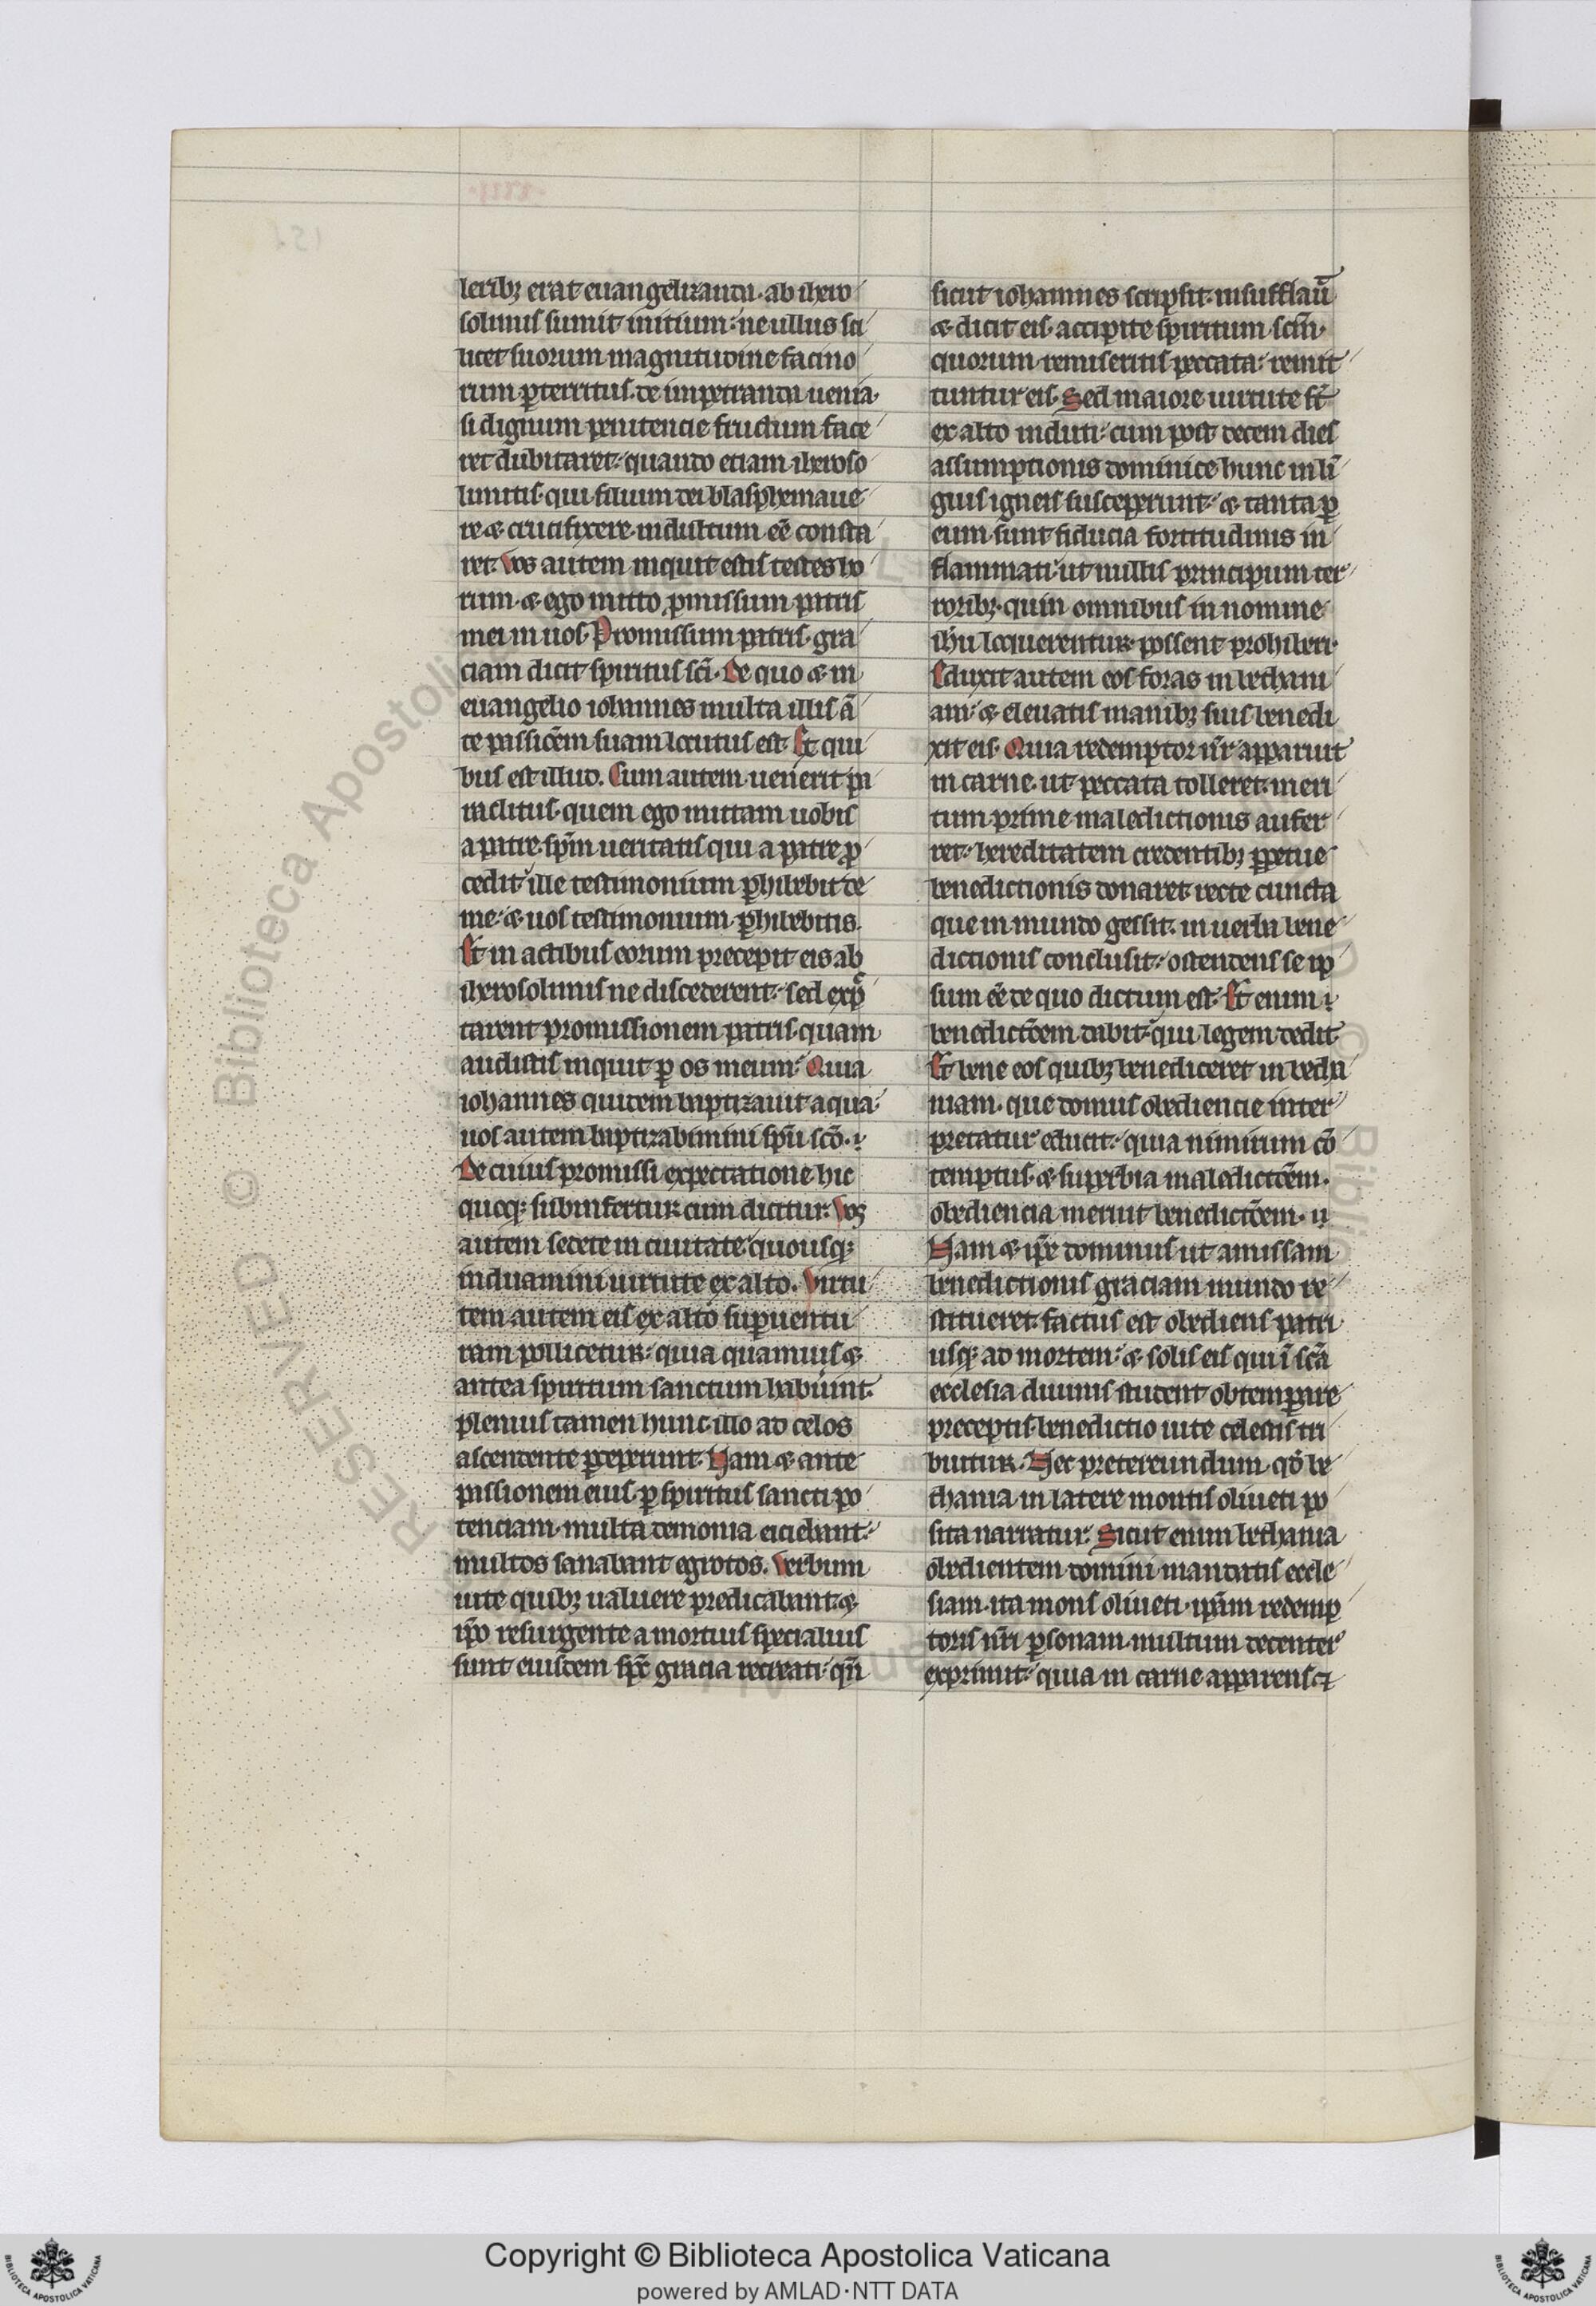 leribꝫ erat euangelizanda. ab ihero
solimis sumit initium: ne ullus sci
licet suorum magnitudine facino
rum ꝑterritus. de impetranda uenia.
si dignum penitencie fructum face
ret dubitaret: quando etiam iheroso
limitis. qui filium dei blasphemaue
re ⁊ crucifixere. indultum eē consta
ret. Vos autem inquit estis testes ho
rum. ⁊ ego mitto ꝓmissum patris
mei in uos. Promissum patris. gra
ciam dicit spiritus sci. De quo ⁊ in
euangelio iohannes multa illis ā
te passiōem suam locutus est. Et qui
bus est illud. Cum autem uenerit pa
raclitus. quem ego mittam uobis
a patre. spm̄ ueritatis qui a patre ꝓ
cedit ille testimonium ꝑhibebit de
me: ⁊ uos testimonium ꝑhibebitis.
Et in actibus eorum precepit eis ab
iherosolimis ne discederent: sed exp̄c
tarent promissionem patris. quam
audistis inquit ꝑ os meum: Quia
iohannes quidem baptizauit aqua.
uos autem baptizabimini spū scō.
De cuius promissi expectatione hic
quoqꝫ subinfertur cum dicitur. Vos
autem sedete in ciuitate quousqꝫ
induamini uirtute ex alto. Virtu
tem autem eis ex alto suꝑuentu
ram pollicetur: quia quamuis ⁊
antea spiritum sanctum habuint.
plenius tamen hunc illo ad celos
ascendente ꝑceperunt. Nam ⁊ ante
passionem eius. ꝑ spiritus sancti po
tenciam. multa demonia eiciebant:
multos sanabant egrotos. Verbum
uite quibꝫ ualuere predicabant. ⁊
ip̄o resurgente a mortuis specialius
sunt eiusdem spc̄ gracia recreati: qn̄
sicut iohannes scripsit. insufflauit̄
⁊ dicit eis. accipite spiritum scm̄.
quorum remiseritis peccata: remit
tuntur eis. Sed maiore uirtute st̄
ex alto induti: cum post decem dies
assumptionis dominice hunc in lī
guis igneis susceperunt: ⁊ tanta ꝑ
eum sunt fiducia fortitudinis in
flammati. ut nullis principum ter
roribꝫ. quin omnibus in nomine
ihu loquerentur. possent prohiberi.
Eduxit autem eos foras in bethani
am: ⁊ eleuatis manibꝫ suis benedi
xit eis. Quia redemptor nr̄ apparuit
in carne. ut peccata tolleret. meri
tum prime maledictionis aufer
ret: hereditatem credentibꝫ ꝑpetue
benedictionis donaret recte cuncta
que in mundo gessit. in uerba bene
dictionis conclusit: ostendens se ip
sum eē de quo dictum est. Et enim
benedictōem dabit. qui legem dedit
Et bene eos quibꝫ benediceret in betha
niam. que domus obediencie inter
pretatur educit: quia nimirum cō
temptus. ⁊ superbia maledictōem.
obediencia meruit benedictōem.
Nam ⁊ ip̄e dominus ut amissam
benedictionis graciam mundo re
stitueret. factus est obediens patri
usqꝫ ad mortem: ⁊ solis eis qui ī scā
ecclesia diuinis student obtemꝑare
preceptis. benedictio uite celestis tri
buitur. Nec pretereundum. qd̄ be
thania in latere montis oliueti po
sita narratur. Sicut enim bethania
obedientem domini mandatis eccle
siam. ita mons oliueti. ip̄am redemp
toris nr̄i ꝑsonam multum decenter
exprimit: quia in carne apparens ⁊